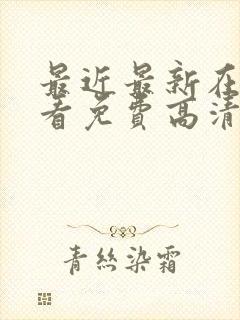 最近最新在
看免费高清
青絲染霜